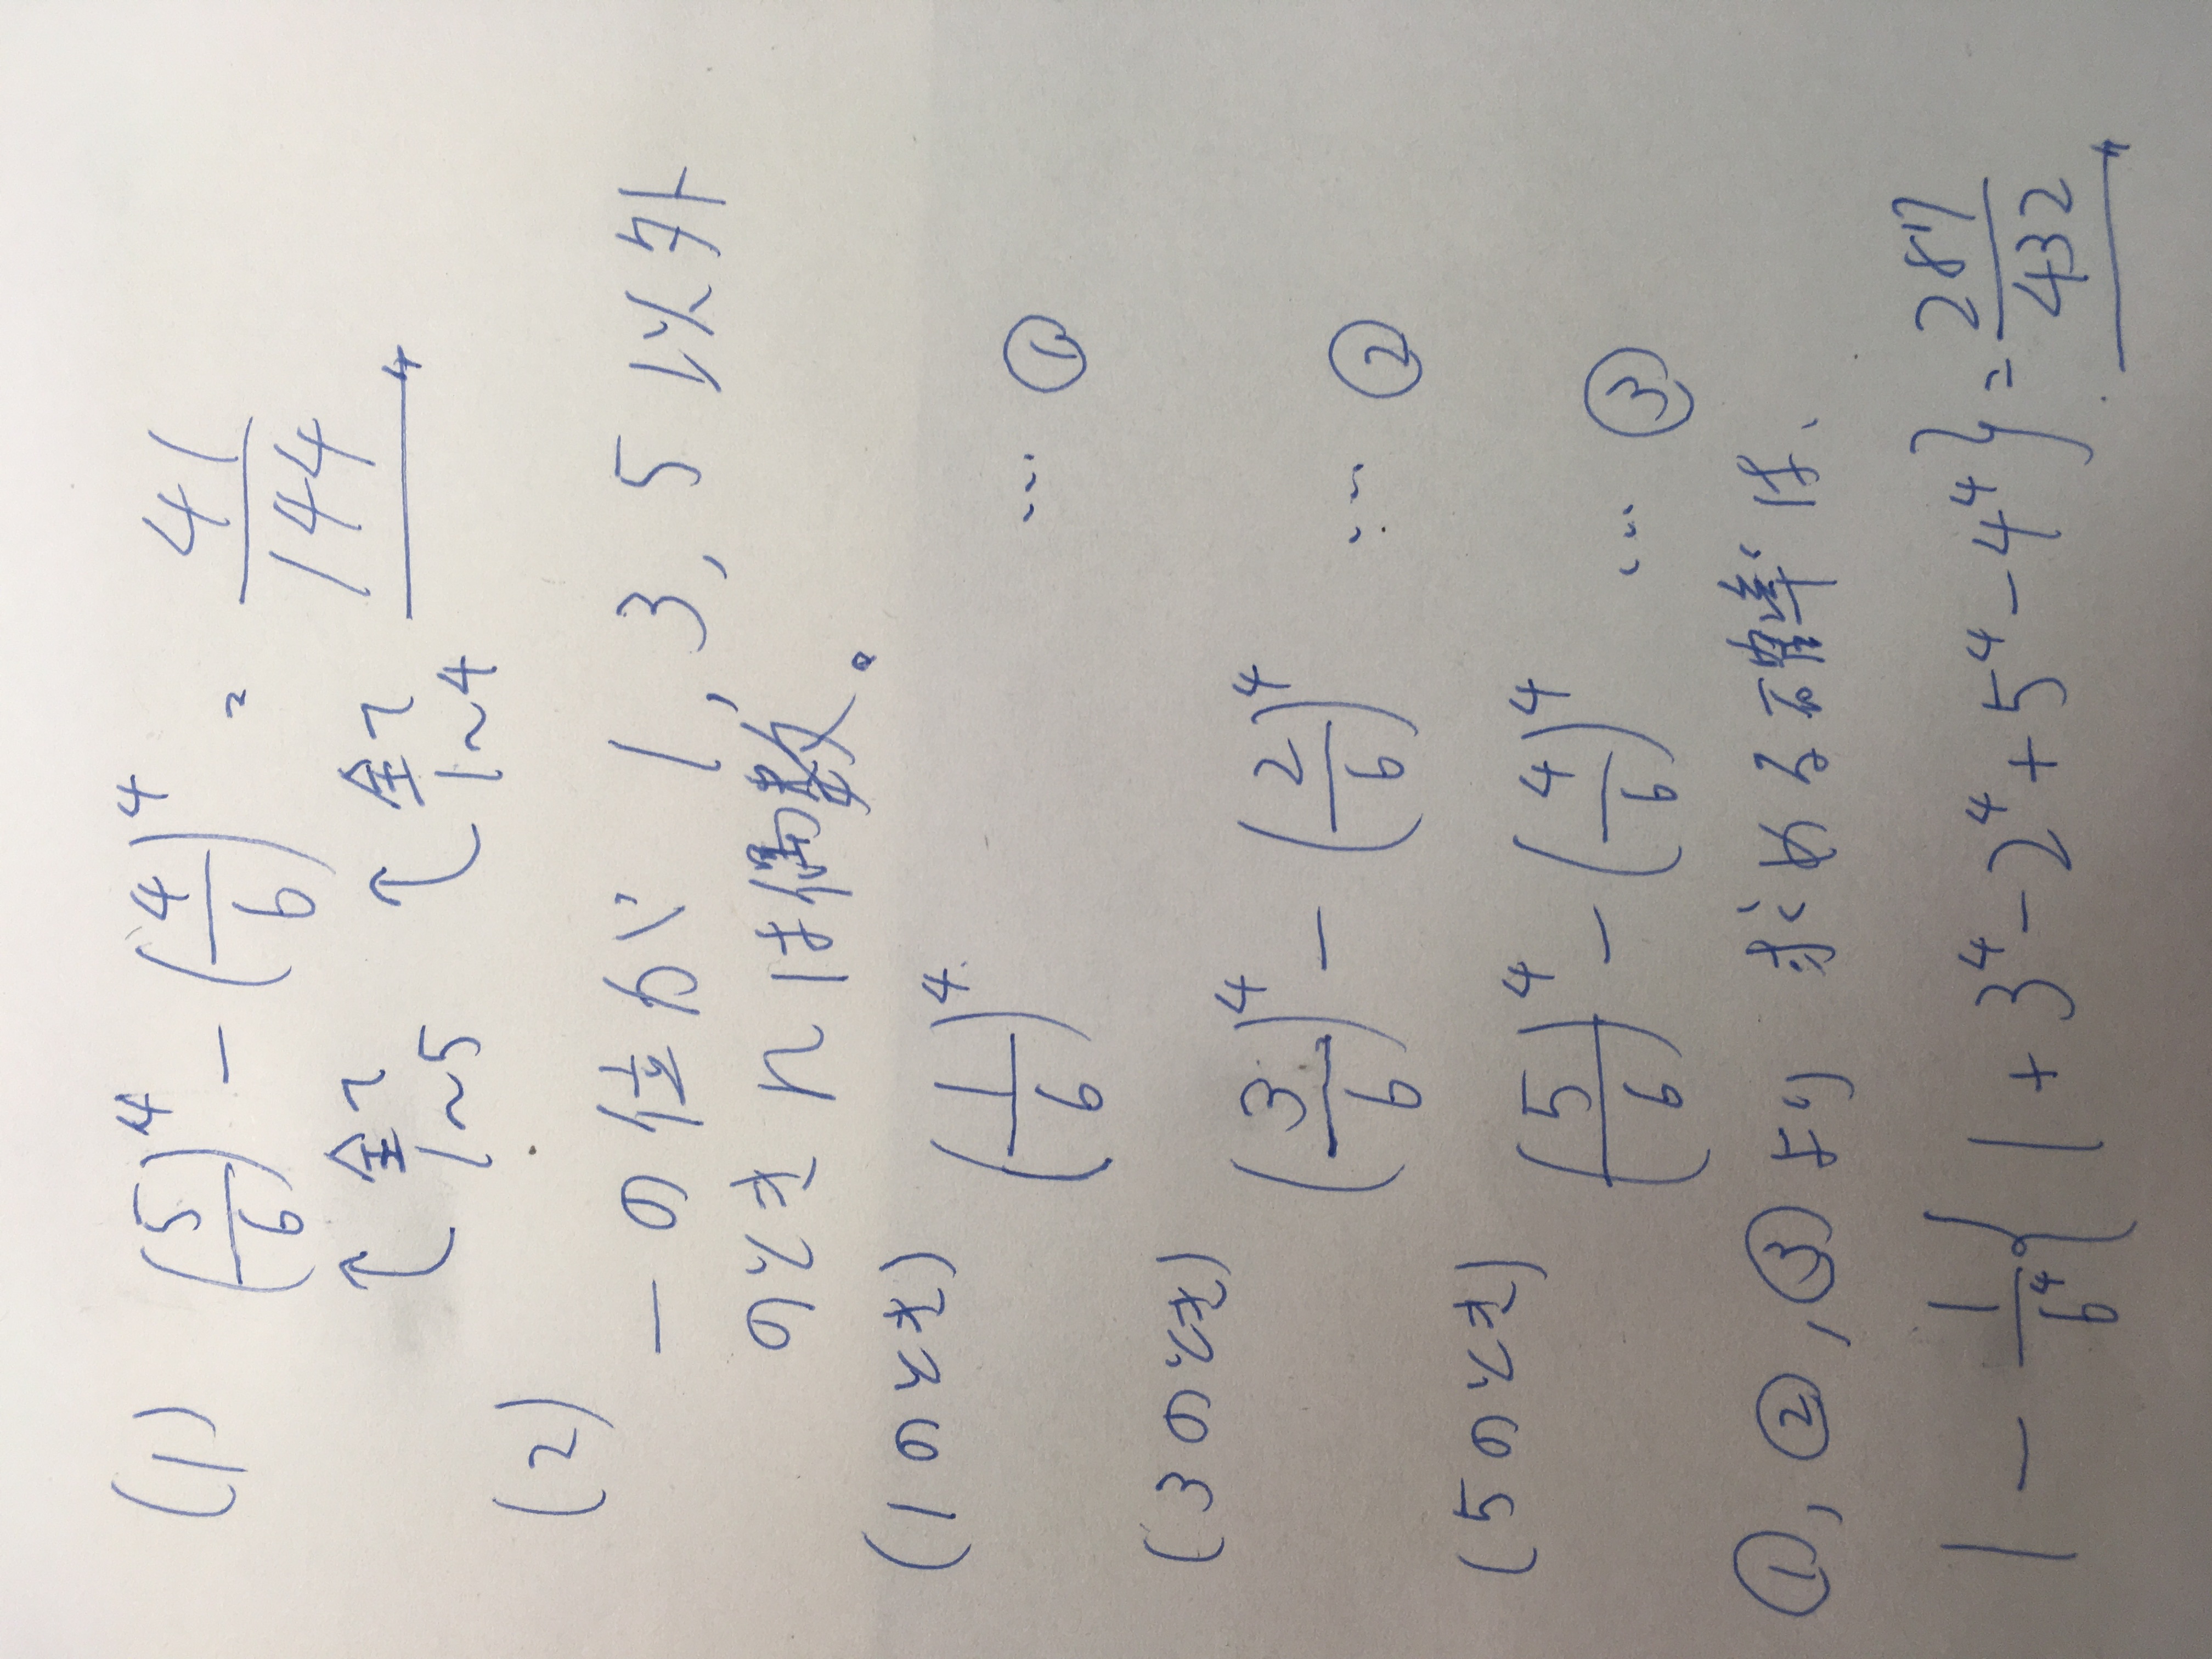 (1) (5/6)⁴ - (4/6)⁴ = 41/144
全て1~5 全て1~4
(2) 一の位が 1, 3, 5 以外
のとき n は偶数。
(1のとき) (1/6)⁴ … ①
(3のとき) (3/6)⁴ - (2/6)⁴ … ②
(5のとき) (5/6)⁴ - (4/6)⁴ … ③
①, ②, ③より 求める確率は、
1 - 1/6⁴{1+3⁴-2⁴+5⁴-4⁴} = 287/432